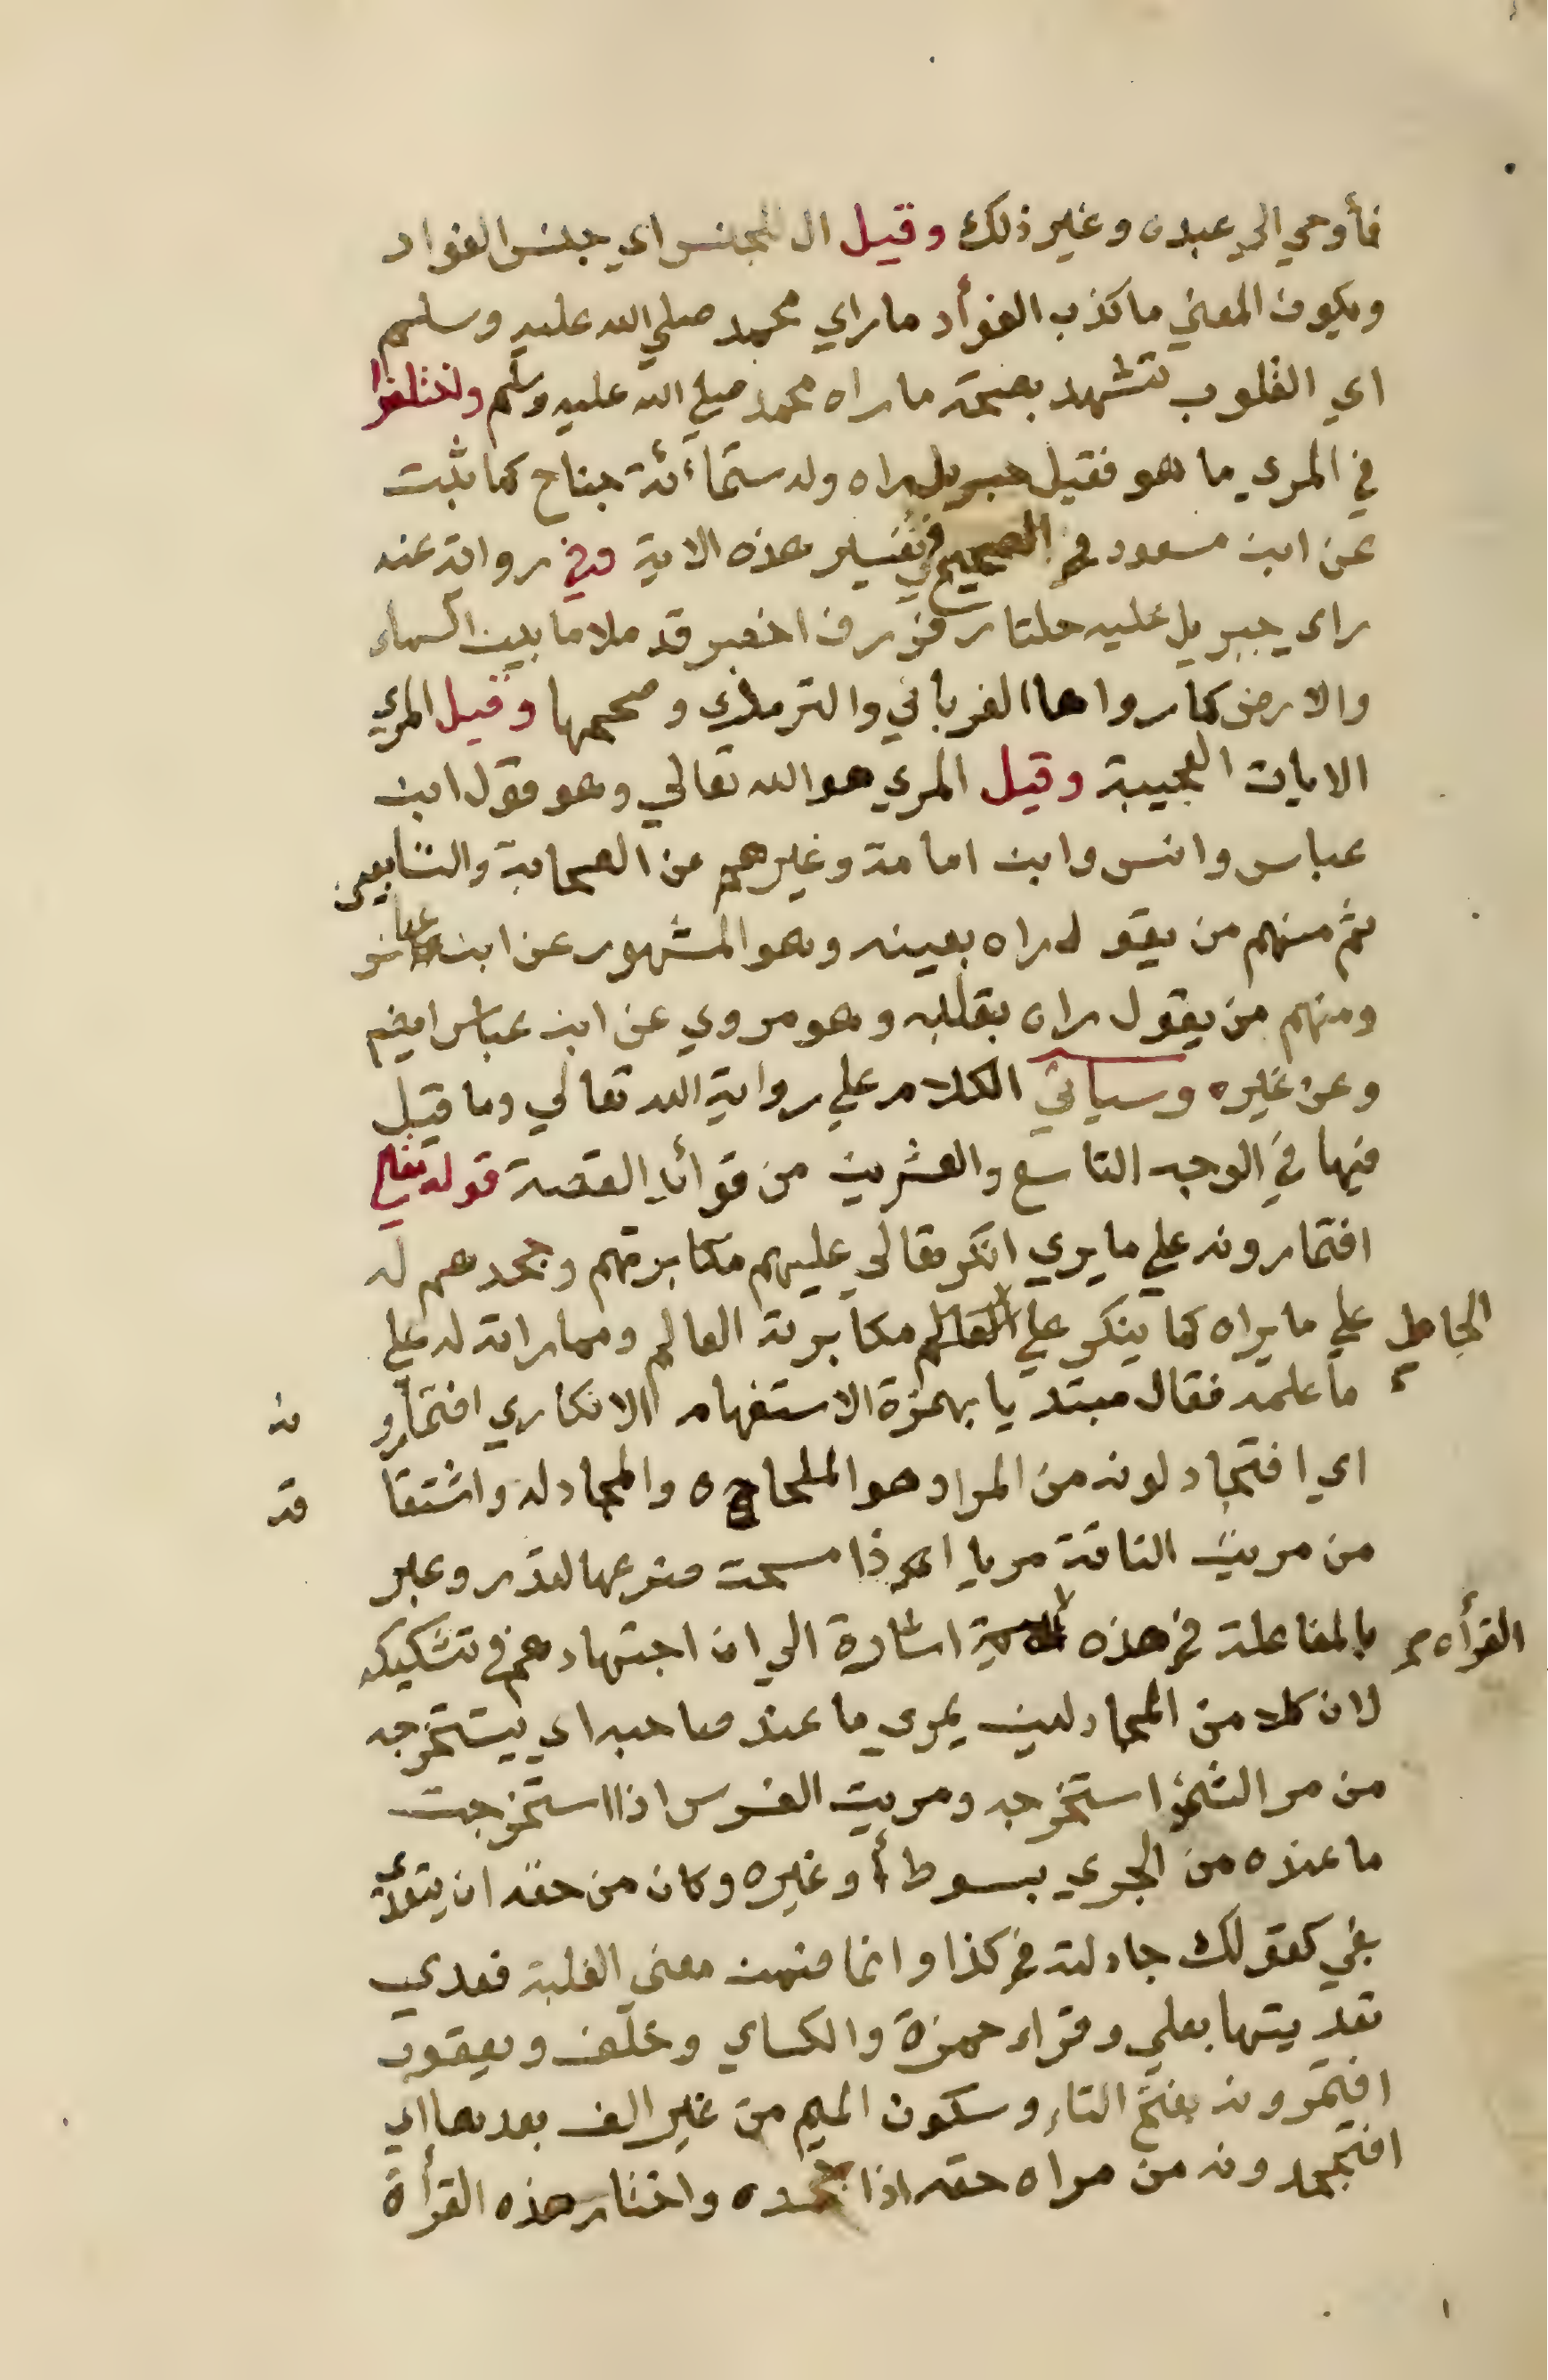 فأوحي الي عبده وغير ذلك وقيل ال للجنس اي جنس الفواد
ويكون المعني ماكذب الفوأد ماراي محمد صلي الله عليه وسلم
اي القلوب تشهد بصحة ماراه محمد صلي الله عليه وسلم واختلفوا
في المري ما هو فقيل جبريل راه وله ستمأئة جناح كما ثبت
عن ابن مسعود في الصحيح في تفسير هذه الاية وفي رواية عنه
راي جبريل عليه حلتا رفرف اخضر قد ملا ما بين السماء
والارض كما رواها الفريابي والترمذي وصححها وقيل المري
الايات العجيبة وقيل المري هو الله تعالي وهو قول ابن
عباس وانس وابن امامة وغيرهم من الصحابة والتابعين
ثم منهم من يقول راه بعينه وهو المشهور عن ابن عباس
ومنهم من يقول راه بقلبه وهو مروي عن ابن عباس ايضم
وعن غيره وسياتي الكلام علي رواية الله تعالي وما قيل
فيها في الوجه التاسع والعشرين من فوأيد القصة قوله تعالي
افتمارونه علي ما يري انكر تعالي عليهم مكابرتهم وجحدهم له
علي ما يراه كما ينكر علي الجاهل مكابرته العالم ومماراته له علي
ما علمه فقال مبتديا بهمزة الاستفهام الانكاري افتمارونه
اي افتجادلونه من المرا وهو الملحاجه والمجادله واشتقاقه
من مريت الناقة مريا اي اذا مسحت ضرعها لتدر وعبر
بالمفاعلة في هذه القرأه اشارة الي ان اجتهادهم في تشكيكه
لان كلا من المجادلين يمري ما عند صاحبه اي يستخرجه
من مر الشئ استخرجه ومريت الفرس اذا استخرجت
ما عنده من الجري بسوط أو غيره وكان من حقه ان يتعدي
بفي كقولك جادلته في كذا وانما ضمنت معني الغلبة فعدي
تعديتها بعلي وقراء حمزة والكساي وخلف ويعقوب
افتمرونه بفتح التاء وسكون الميم من غير الف بعدها اي
افتجحدونه من مراه حقه اذا جحده واختار هذه القرأة